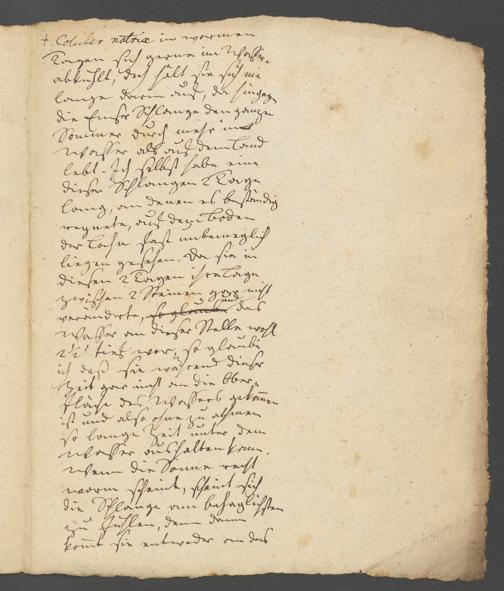 +. Coluber natrix in warmen
Tagen sich gerne im Wasser
abkühlt, doch hält sie sich nie
lange darin auf, da hingegen
die Emser Schlange den ganzen
Sommer durch mehr im
Wasser als auf dem Land
lebt. Ich selbst habe eine
dieser Schlangen 2 Tage
lang, an denen es beständig
regnete, auf dem Boden
der Lahn fast unbeweglich
liegen gesehen. Da sie in
diesen 2 Tagen ihre Lage
zwischen 2 Steinen gar nicht
veränderte, so glaube und das
Wasser an dieser Stelle wohl
2½' tief war, so glaube
ich daß sie während dieser
Zeit gar nicht an die Ober-
fläche des Wassers gekommen
ist und also ohne zu athmen
so lange Zeit unter dem
Wasser aushalten kann.
Wenn die Sonne recht
warm scheint, scheint sich
die Schlange am behaglichsten
zu fühlen, denn dann
kommt sie entweder an das